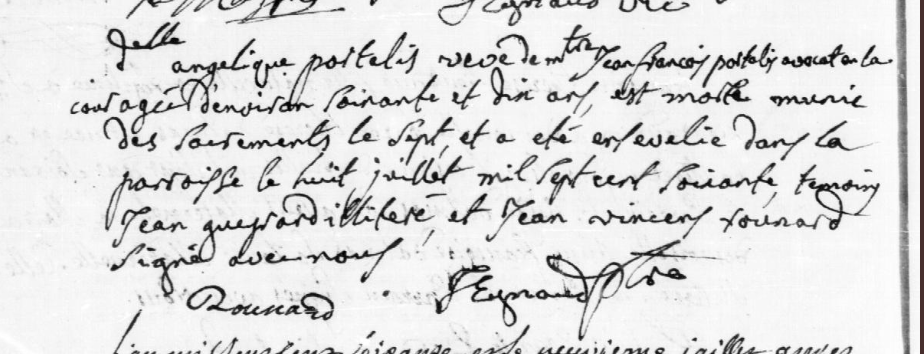 delle angelique portalis veve de mtre Jean francois portalis avocat en la
cour agée d'environ soixante et dix ans, est morte munie
des sacrements le sept, et a eté ensevelie dans la
parroisse le huit juillet mil sept cent soixante, temoins
Jean gueyrard illiteré, et Jean vincens rounard
signé avec nous
Rounard Eymaud Ptre
neuvieme juillet